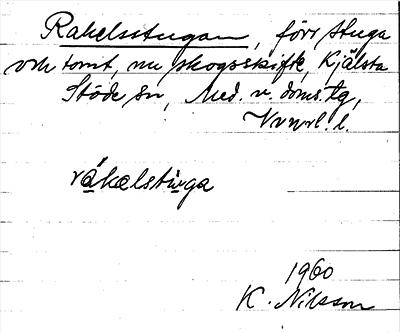 Rakelsstugan, förr stuga
och tomt, nu skogsskifte, Kjälsta
Stöde sn, Med. v. doms. tg,
Vnorl. l.
rákælstuga
1960
K. Nilsson